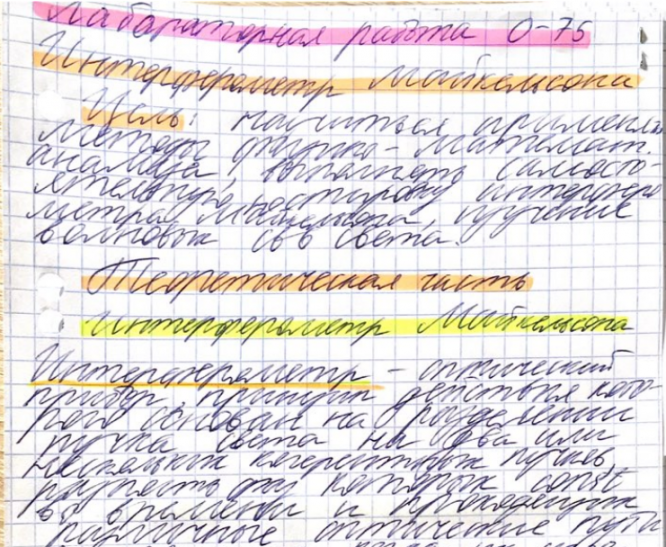 Лабараторная работа О-75
Интерферометр Майкельсона
Цель: научиться применять
методы физико-математ.
анализа, выполнять самосто-
ятельную юстировку интерферо
метра Майкельсона, изучение
волновых св-в света.
Теоретическая часть
Интерферометр Майкельсона
Интерферометр - оптический
прибор, принцип действия кото-
рого основан на разделении
пучка света на два или
нескольких когерентных пучков
разность фаз которых const
во времени и проходящих
различные оптические пути